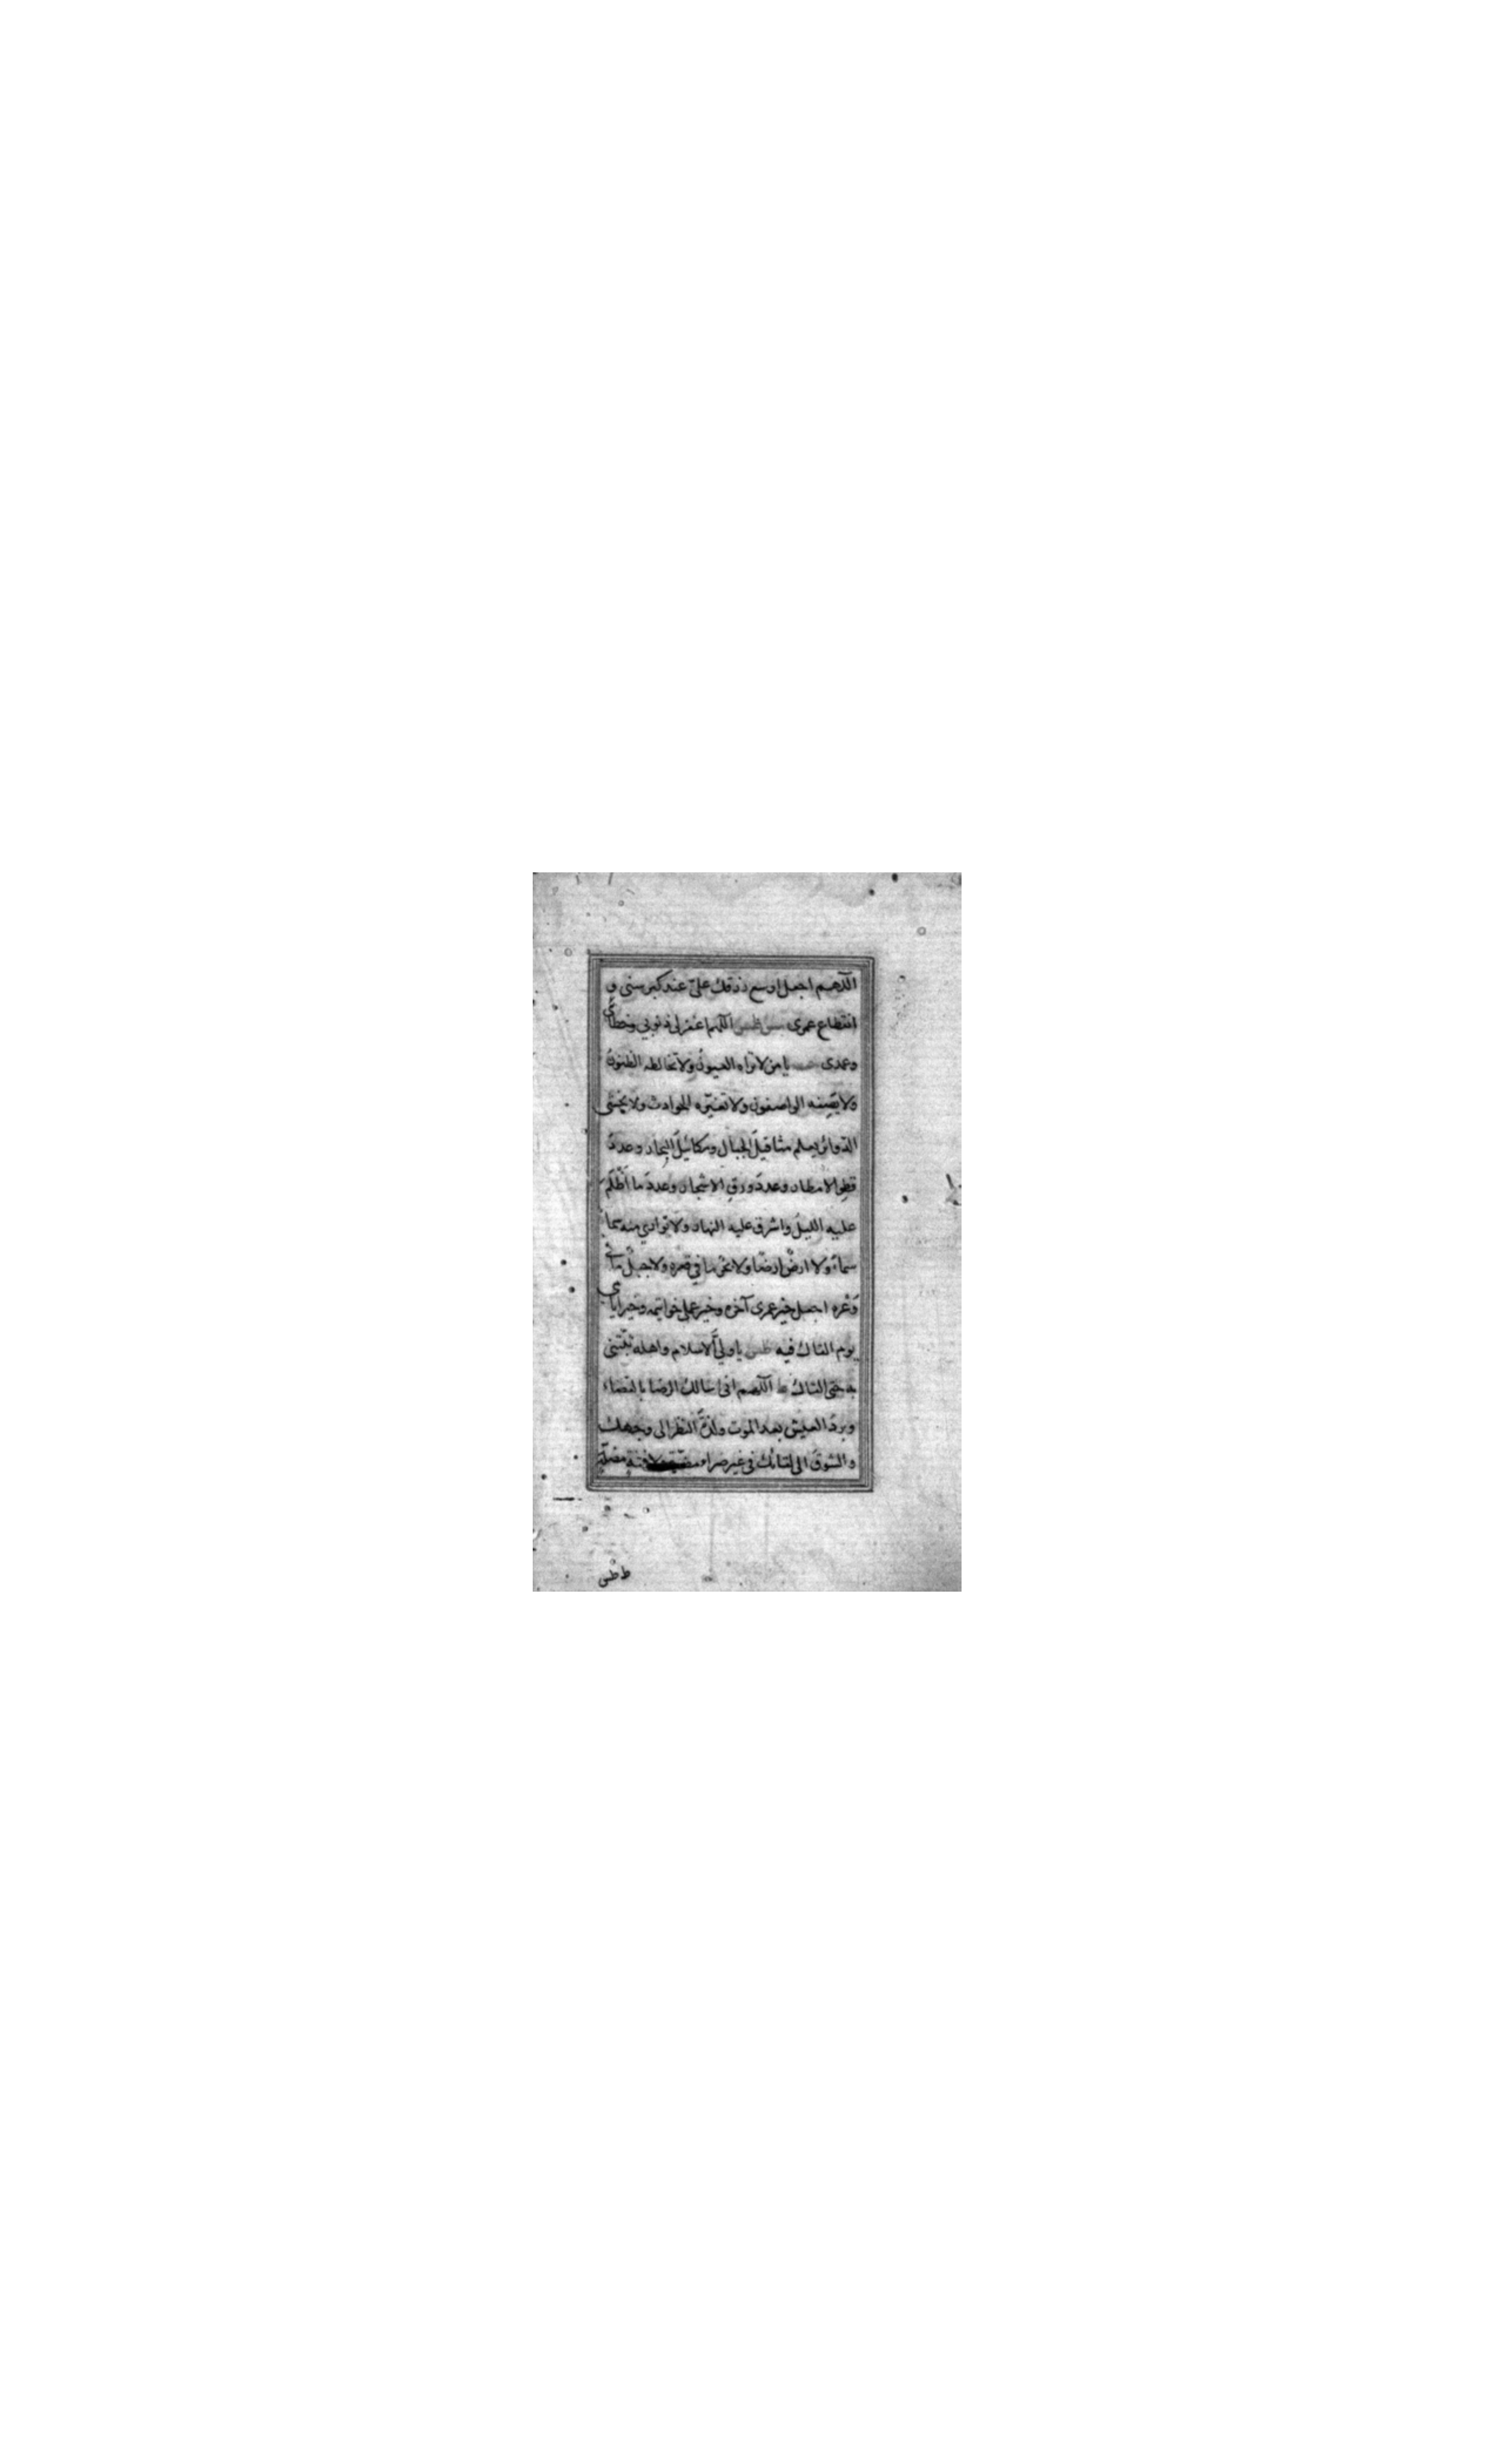 اللهم اجعل اوسع رزقك علىّ عند كبر سنى و
انقطاع عمرى طس اللهم اغفر لى ذنوبي وخطائى
وعمدى يا من لا تراه العيونُ ولا تخالطه الظنونُ
ولا يصِفه الواصفون ولا تغيّره الحوادث ولا يخشى
الدّوائر يعلم مثاقيلَ الجبال ومكائيلَ البحار وعددَ
قطر الامطار وعددَ ورقِ الاشجار وعددَ ما اَظْلَم
عليه الليلُ واشرق عليه النهار ولا توارى منه سماءٌ
سماءً ولا ارضٌ ارضًا ولا بحر ما في قعره ولا جبلٌ ما في
وَعْره اجعل خيرَ عمرى آخره وخير عملى خواتيمه وخير ايامى
يوم القاك فيه طس يا ولىَّ الاسلام واهله ثبّتنى
به حتى القاكَ ط اللهم انى اسالك الرضا بالقضاء
وبردَ العيش بعد الموت ولذّةَ النظر الى وجهك
والشوقَ الى لقائك فى غير ضراء مضرّة ولا فتنة مضلّة
ط طس